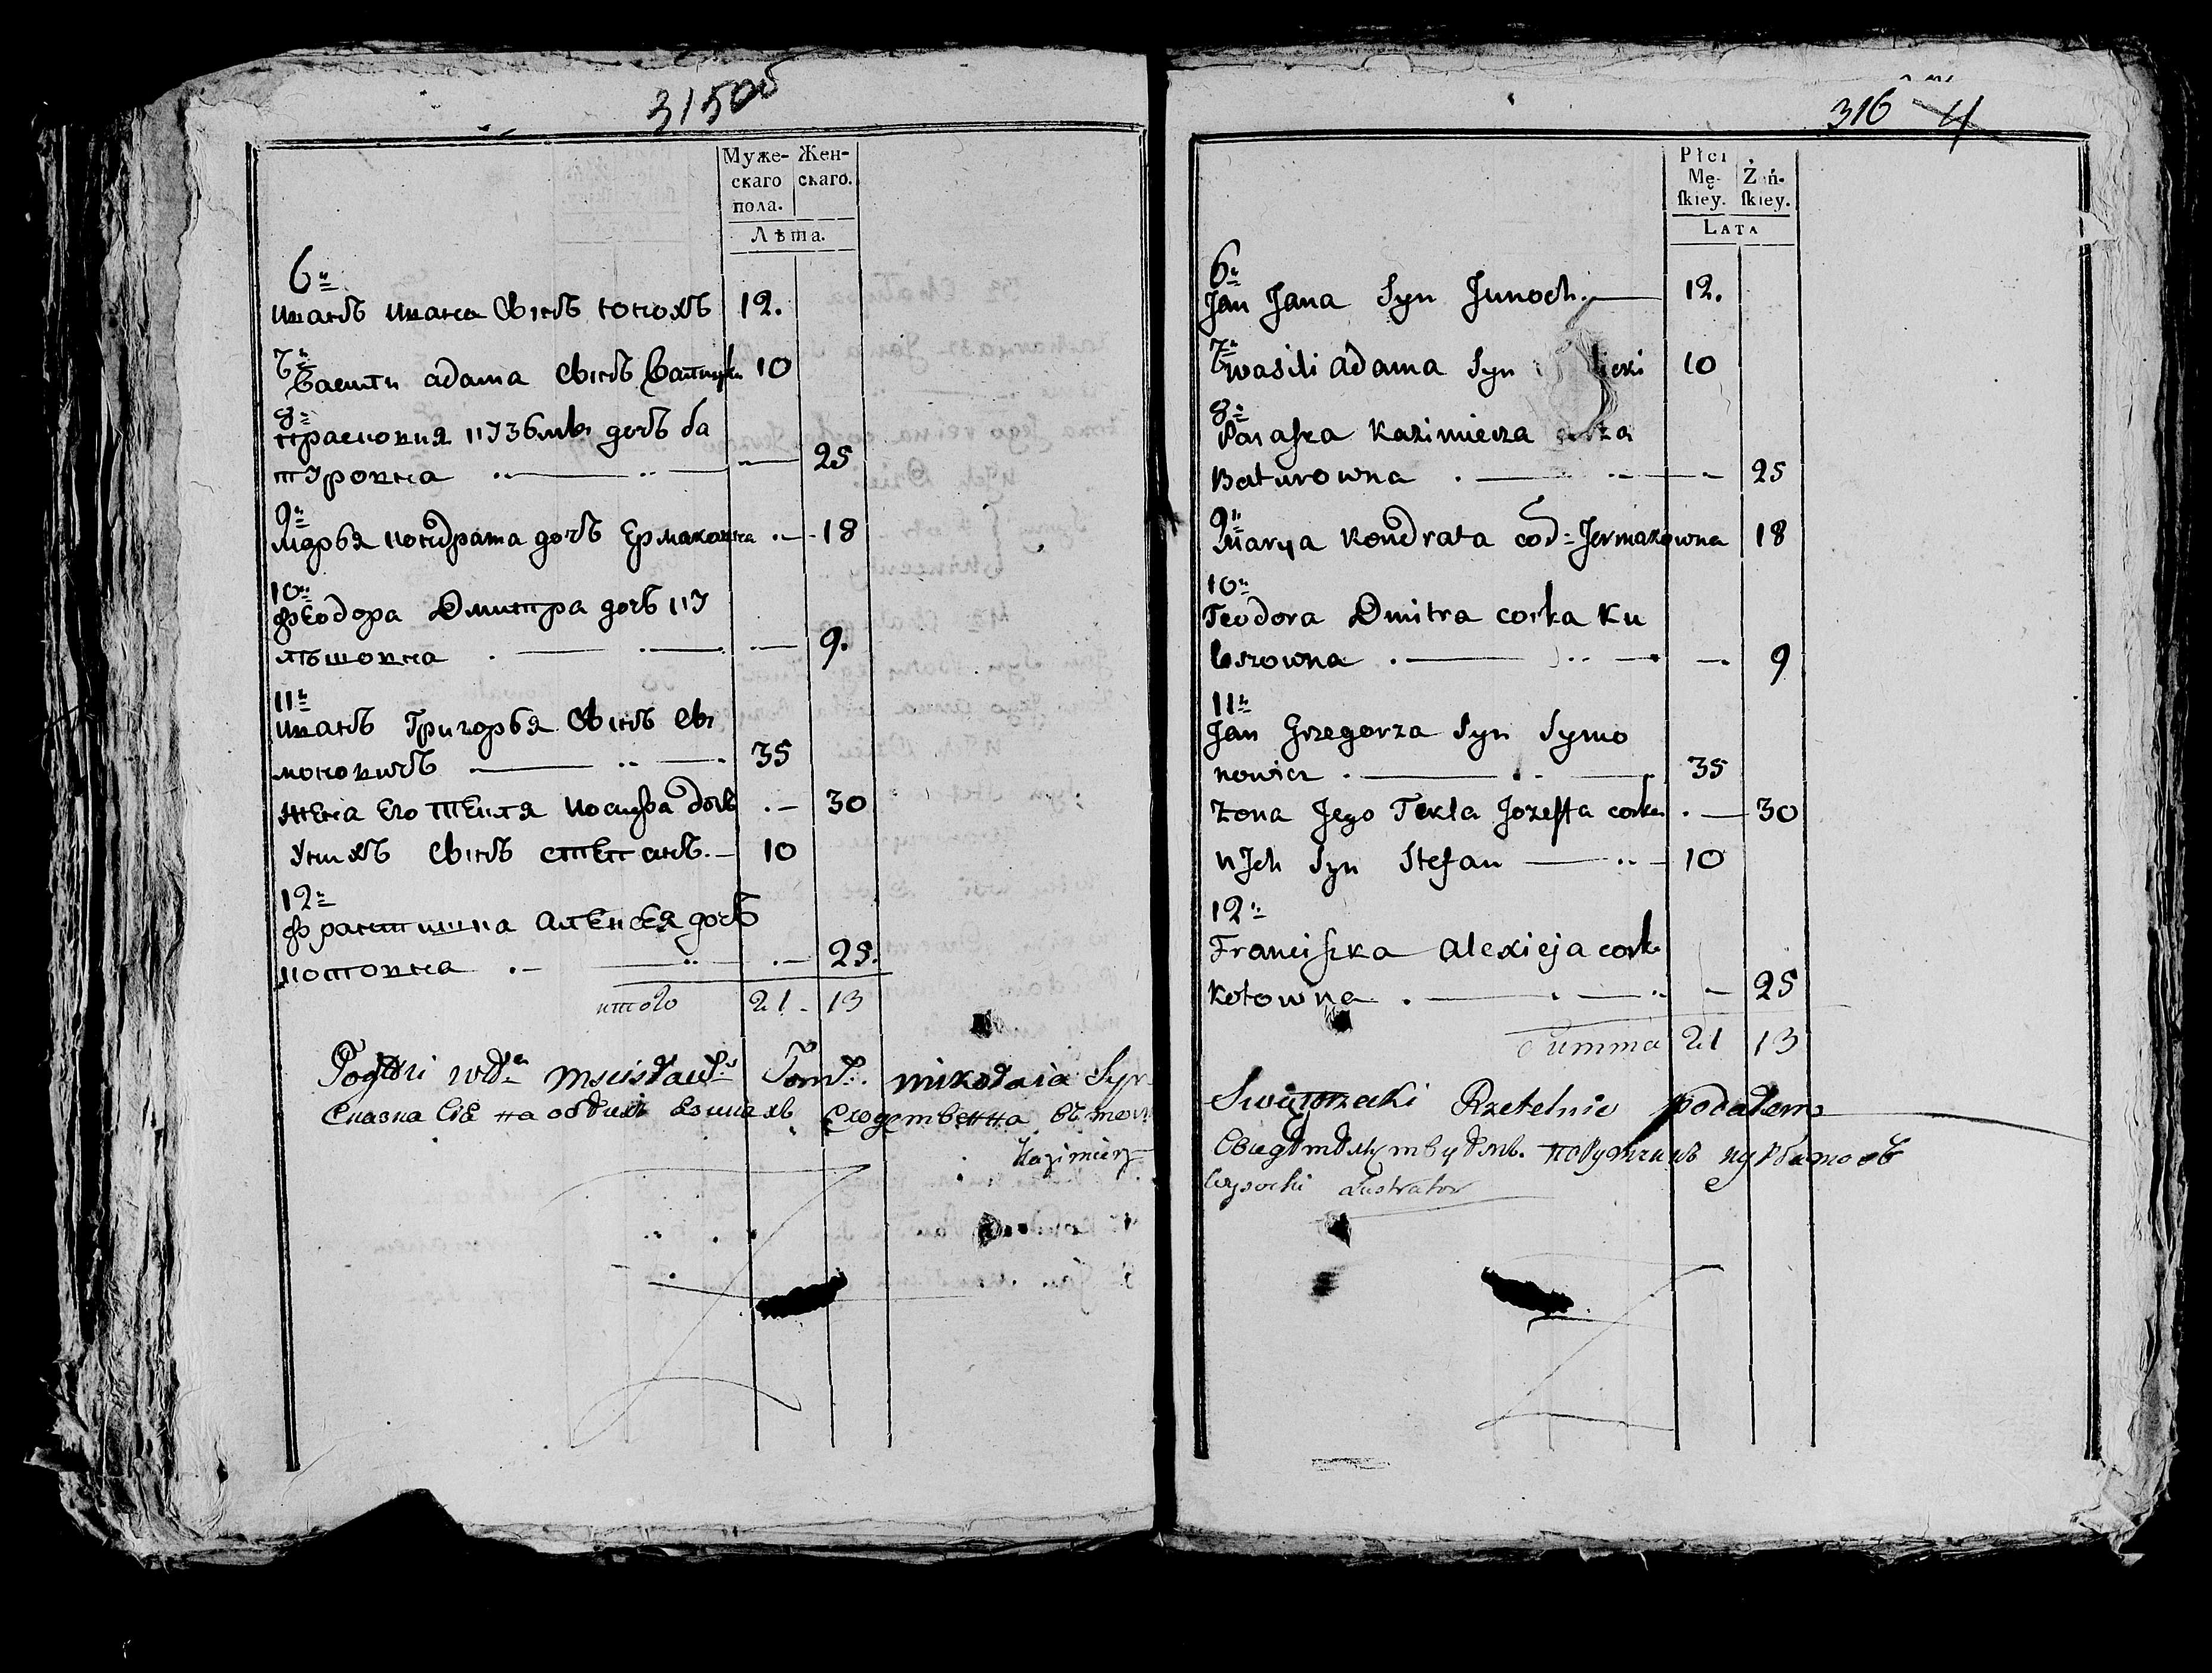 315об
Муже- Жен-
скаго скаго.
пола.
Лѣта.
6:
иванъ ивана сынъ юнохъ 12.
7:
Василь адама сынъ 10
8:
прасковия кузбмы дочъ ба
туровна 25
9:
марья кондрата дочъ Ермаковна 18
10:
феодора Дмитра дочъ ку
льшовна 9.
11:
иванъ Григорья сынъ сы
моновичъ 35
жена его текля иосифа дочь 30
У нихъ сынъ степанъ. 10
12:
францишка алексея дочъ
котовна 25.
итого 21 - 13
mikołaia Syn
Сказка сiя на обѣихъ языкахъ
Kazimierz
316 4
Płci
Mę- Żeń-
ſkiey. ſkiey.
LATA
6:
Jan Jana Syn Junoch. 12.
7:
wasili adama Syn 10
8:
Paraſka Kazimierza
Baturowna 25
9:
Marya Kondrata cod: Jermakowna 18
10:
Teodora Dmitra corka Ku
lszowna 9
11:
Jan Grzegorza Syn Symo
nowicz 35
Zona Jego Tekla Jozeffa corka 30
U Jch Syn Stefan 10
12:
Franciſzka Alexieja cork
Kotowna 25
Summa 21 13
Swiętorzecki Rzetelnie podałem
Wysocki Lustrator